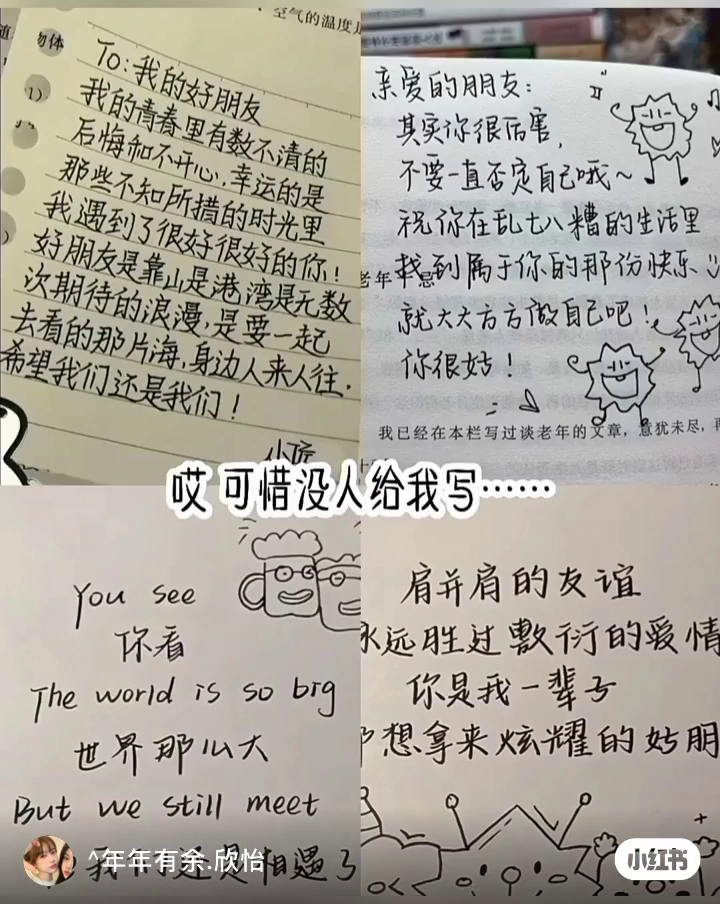 空气的温度是
物体
1)
To:我的好朋友
我的青春里有数不清的
后悔和不开心,幸运的是
那些不知所措的时光里
我遇到了很好很好的你!
好朋友是靠山是港湾是无数
次期待的浪漫,是要一起
去看的那片海,身边人来人往.
希望我们还是我们!
小匠
亲爱的朋友:
其实你很厉害,
不要一直否定自己哦~
祝你在乱七八糟的生活里
找到属于你的那份快乐
就大大方方做自己吧!
你很好!
老年
我已经在本栏写过谈老年的文章,意犹未尽,再
哎 可惜没人给我写……
You see
你看
The world is so big
世界那么大
But we still meet
我们还是相遇了
肩并肩的友谊
永远胜过敷衍的爱情
你是我一辈子
都想拿来炫耀的好朋
^年年有余.欣怡
小红书